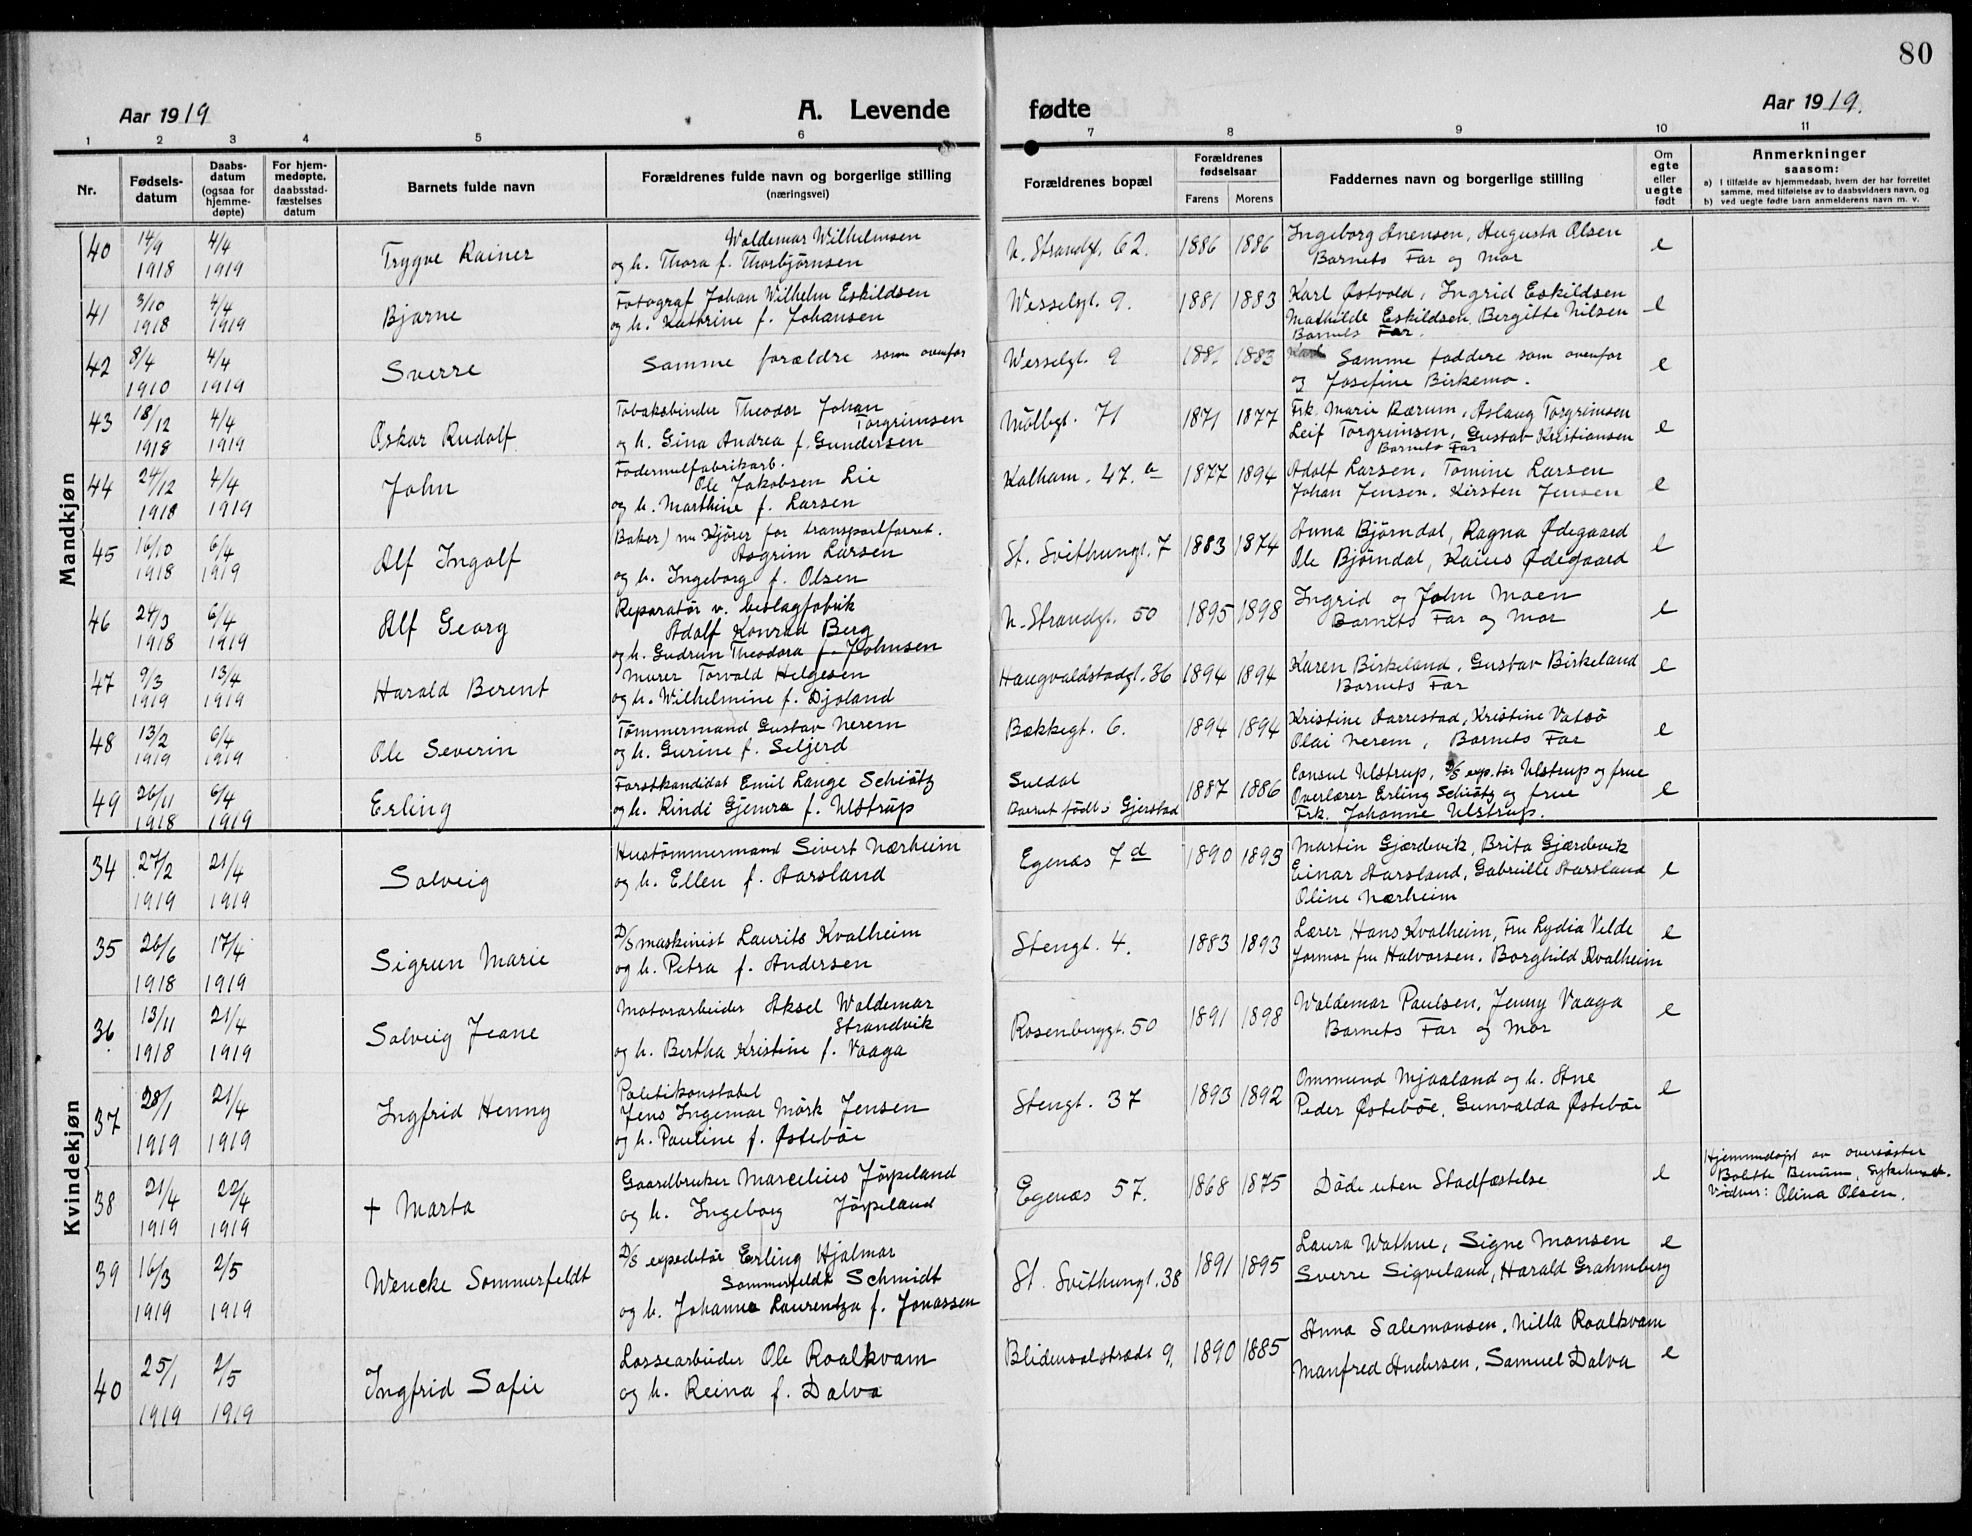 80
Aar 1919
A. Levende fødte
Aar 1919.
1 2 3 4 5 6 7 8 9 10 11
Nr.
Fødsels-
datum
Daabs-
datum
(ogsaa for
hjemme-
døpte)
For hjem-
medøpte,
daabsstad-
fæstelses
datum
Barnets fulde navn
Forældrenes fulde navn og borgerlige stilling
(næringsvei)
Forældrenes bopæl
Forældrenes
fødselsaar
Farens Morens
Faddernes navn og borgerlige stilling
Om
egte
eller
uegte
født
Anmerkninger
saasom:
a) I tilfælde av hjemmedaab, hvem der har forrettet
samme, med tilføielse av to daabsvidners navn, og
b) ved uegte fødte barn anmelderens navn m. v.
Mandkjøn
40 14/9 1918 4/4 1919 Trygve Rainer
Waldemar Wilhelmsen
og h. Thora f. Thorbjørnsen
N. Strandgt. 62. 1886 1886
Ingeborg Anensen, Augusta Olsen
Barnets Far og Mor
e
41 3/10 1918 4/4 1919 Bjarne
Fotograf Johan Wilhelm Eskildsen
og h. Kathrine f. Johansen
Wesselgt. 9. 1881 1883
Karl Østvold, Ingrid Eskildsen
Mathilde Eskildsen, Bergitte Nilsen
Barnets Far.
e
42 8/4 1910 4/4 1919 Sverre
Samme forældre som ovenfor
Wesselgt. 9 1881 1883
Samme faddere som ovenfor
og Josefine Birkemo.
e
43 18/12 1918 4/4 1919 Oskar Rudolf
Tobaksbinder Theodor Johan
Torgrimsen
og h. Gina Andrea f. Gundersen
Möllegt. 71 1871 1877
Frk. Marie Rærum, Aslaug Torgrimsen
Leif Torgrimsen, Gustav Kristiansen
Barnets Far
e
44 24/12 1918 4/4 1919 John
Fodermelfabrikarb.
Ole Jakobsen Lie
og h. Marthine f. Larsen
Kalham. 47.a 1877 1894
Adolf Larsen, Tomine Larsen
Johan Jensen. Kirsten Jensen
e
45 16/10 1918 6/4 1919 Alf Ingolf
Baker) nu Kjører for transportforret.
Asgrim Larsen
og h. Ingeborg f. Olsen
St. Svithungt. 7 1883 1874
Anna Bjørndal, Ragna Ødegaard
Ole Bjørndal, Kaius Ødegaard
e
46 24/3 1918 6/4 1919 Alf Georg
Reparatør v. beslagfabrik
Adolf Konrad Berg
og h. Gudrun Theodora f. Johnsen
N. Strandgt. 50 1895 1898
Ingrid og John Moen
Barnets Far og Mor
e
47 9/3 1919 13/4 1919 Harald Berent
Murer Torvald Helgesen
og h. Wilhelmine f. Djoland
Haugvaldstadgt. 36 1894 1894
Karen Birkeland, Gustav Birkeland
Barnets Far
e
48 13/2 1919 6/4 1919 Ole Severin
Tömmermand Gustav Nerem
og h. Gurine f. Seljerd
Bækkegt. 6. 1894 1894
Kristine Aarrestad, Kristine Vatsö
Olai Nerem, Barnets Far
e
49 26/11 1918 6/4 1919 Erling
Forstkandidat Emil Lange Schiötz
og h. Rindi Gjemre f. Ulstrup
Suldal
Barnet født i Gjerstad 1887 1886
Consul Ulstrup, D/S exp.tör Ulstrup og frue
Overlærer Erling Schiötz og frue
Frk. Johanne Ulstrup.
e
Kvindekjøn
34 27/2 1919 21/4 1919 Solveig
Hustömmermand Sivert Nærheim
og h. Ellen f. Aarsland
Egenæs 7d 1890 1893
Martin Gjærdevik, Brita Gjærdevik
Einar Aarsland, Gabrielle Aarsland
Oline Nærheim
e
35 26/6 1918 17/4 1919 Sigrun Marie
D/S maskinist Laurits Kvalheim
og h. Petra f. Andersen
Stengt. 4. 1883 1893
Lærer Hans Kvalheim, Fru Lydia Velde
Formor fru Halvorsen. Borghild Kvalheim
e
36 13/11 1918 21/4 1919 Solveig Jeane
Motorarbeider Aksel Waldemar
Strandvik
og h. Bertha Kristine f. Vaaga
Rosenberggt. 50 1891 1898
Waldemar Paulsen, Jenny Vaaga
Barnets Far og Mor
e
37 28/1 1919 21/4 1919 Ingfrid Henny
Politikonstabel
Jens Ingemar Mörk Jensen
og h. Pauline f. Østeböe
Stengt. 37 1893 1892
Ommund Mjaaland og h. Ane
Peder Østeböe, Gunvalda Østeböe
e
38 21/4 1919 22/4 1919 + Marta
Gaardbruker Marcelius Jörpeland
og h. Ingeborg Jörpeland
Egenæs 57. 1868 1875
Døde uten Stadfæstelse
e
Hjemmedøpt av oversøster
Bolette Sykehuset.
Vidner: Olina Olsen.
39 16/3 1919 2/5 1919 Wencke Sommerfeldt
D/S expeditör Erling Hjalmar
Sommerfeldt Schmidt
og h. Johanne Laurentza f. Jonassen
St. Svithungt. 38 1891 1895
Laura Wathne, Signe Monsen
Sverre Sigveland, Harald Grahmberg
e
40 25/1 1919 2/5 1919 Ingfrid Sofie
Lossearbeider Ole Roalkvam
og h. Reina f. Dalva
Blidensolstrædt 9. 1890 1885
Anna Salemonsen, Nilla Roalkvam
Manfred Andersen, Samuel Dalva
e